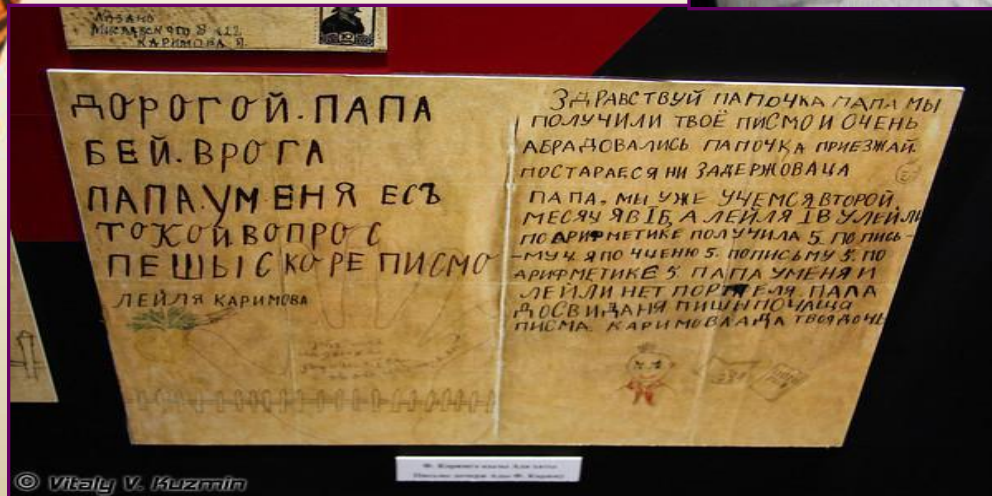 КАРИМОВА Я.
ДОРОГОЙ. ПАПА
БЕЙ. ВРОГА
ПАПА. УМЕНЯ ЕСЪ
ТОКОЙ ВОПРОС
ПЕШЫ СКОРЕ ПИСМО
ЛЕЙЛЯ КАРИМОВА
ЗДРАВСТВУЙ ПАПОЧКА ПАПА МЫ
ПОЛУЧИЛИ ТВОЁ ПИСМО И ОЧЕНЬ
АБРАДОВАЛИСЬ ПАПОЧКА ПРИЕЗЖАЙ.
ПОСТАРАЕСЯ НИ ЗАДЕРЖОВАЦА
ПАПА. МЫ УЖЕ УЧЕМСЯ ВТОРОЙ
МЕСЯЧ Я В IБ, А ЛЕЙЛЯ IВ УЛЕЙЛИ
ПО АРИФМЕТИКЕ ПОЛУЧИЛА 5. ПО ПИСЬ-
-МУ 4. Я ПО ЧТЕНЮ 5. ПОПИСЬМУ 5. ПО
АРИФМЕТИКЕ 5. ПАПА УМЕНЯ И
ЛЕЙЛИ НЕТ ПОРТФЕЛЯ. ПАПА
ДОСВИДАНЯ ПИШЫ ПОЧАЩА
ПИСМА. КАРИМОВА АДА ТВОЯ ДОЧЬ
© Vitaly V. Kuzmin